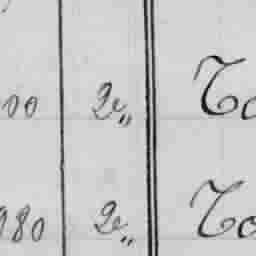 00 2e„ To
980 2e„ To